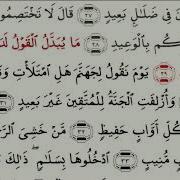 فِى ضَلَـٰلٍۭ بَعِيدٍ ﴿٢٧﴾ قَالَ لَا تَخْتَصِمُوا۟
كُم بِٱلْوَعِيدِ ﴿٢٨﴾ مَا يُبَدَّلُ ٱلْقَوْلُ لَدَ
﴿٢٩﴾ يَوْمَ نَقُولُ لِجَهَنَّمَ هَلِ ٱمْتَلَأْتِ وَتَ
وَأُزْلِفَتِ ٱلْجَنَّةُ لِلْمُتَّقِينَ غَيْرَ بَعِيدٍ
كُلِّ أَوَّابٍ حَفِيظٍ ﴿٣٢﴾ مَّنْ خَشِىَ ٱلرَّ
مُّنِيبٍ ﴿٣٣﴾ ٱدْخُلُوهَا بِسَلَـٰمٍ ۖ ذَٰلِكَ